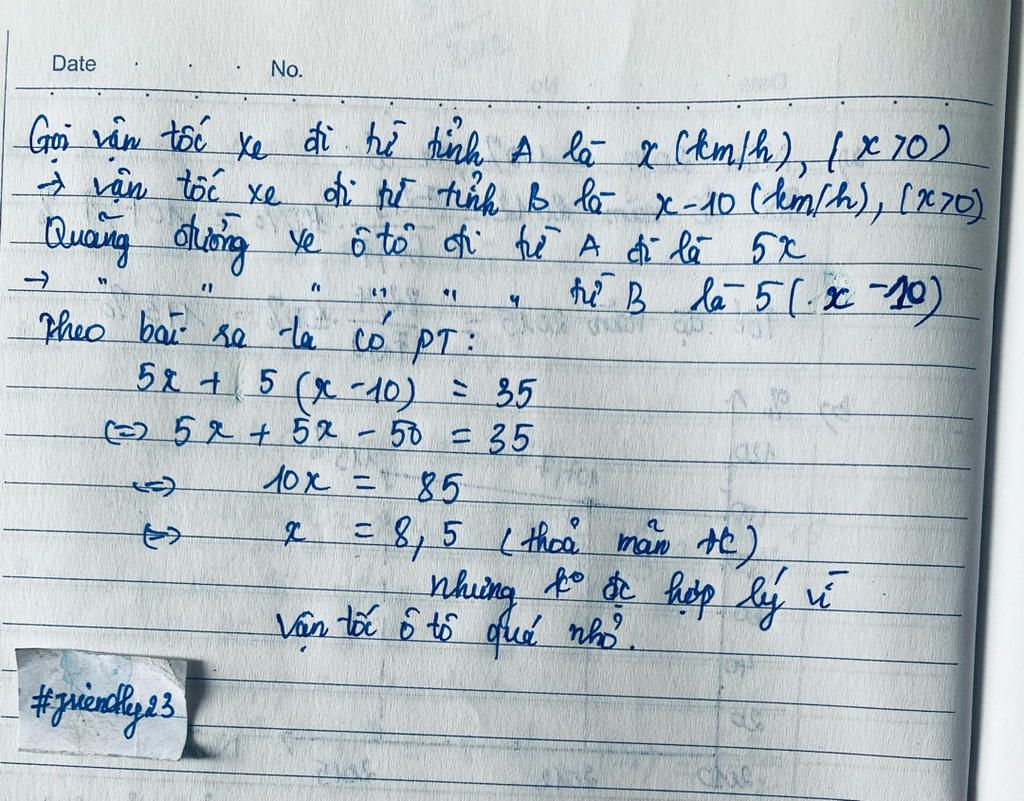 Date . . . No.
Gọi vận tốc xe đi từ tỉnh A là x (km/h), (x>0)
→ vận tốc xe đi từ tỉnh B là x-10 (km/h), (x>0)
Quãng đường xe ô tô đi từ A đi là 5x
→ " " " " " " từ B là 5(x-10)
Theo bài ra ta có PT:
5x + 5(x-10) = 35
<=> 5x + 5x - 50 = 35
<=> 10x = 85
<=> x = 8,5 (thoả mãn đk)
nhưng k° đc hợp lý vì
vận tốc ô tô quá nhỏ.
#friendly23